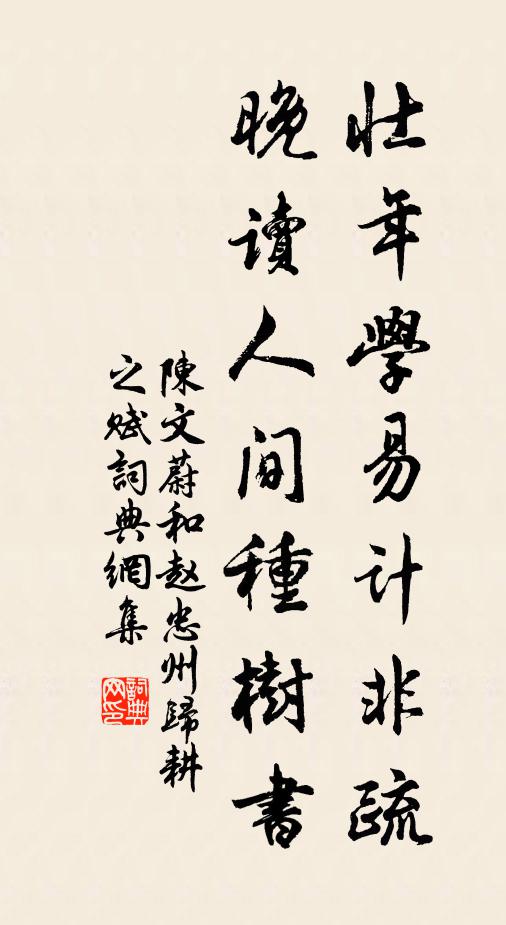 壮年學易计非疏
晚读人间種樹書
陳文蔚和赵忠州歸耕
之賦詞典網集
詞典
网印